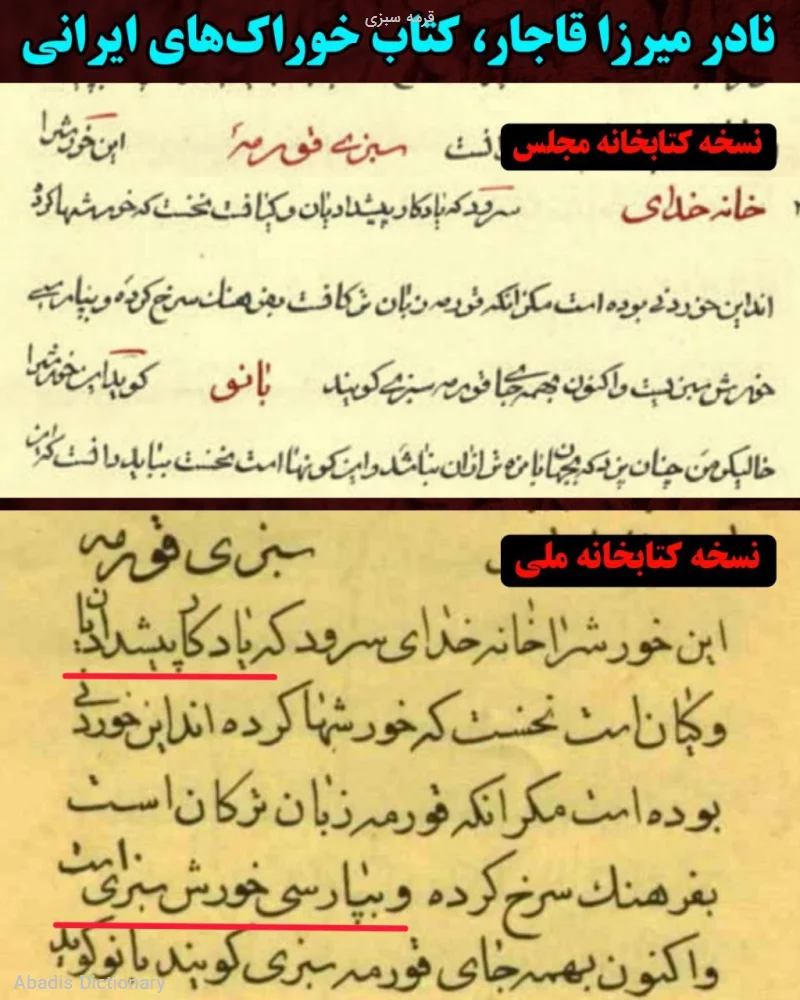 قرمه سبزی
نادر میرزا قاجار، کتاب خوراک‌های ایرانی
نسخه کتابخانه مجلس
سبزی قورمهٔ این خورش را
خانه خدای سرود که یادکار پیشدادیان و کیان است نخست که خورشها کرده
اند این خوردنی بوده است مکر آنکه قورمه زبان ترکان است بفرهنك سرخ کرده و بپارسی
خورش سبزیست و اکنون بهمه جا قورمه سبزی کویند بانو کوید این خورش را
خالیکر من چنان پزد که بجهان با مزه تر از آن نباشد و این کونها است نخست بباید دانست که این
نسخه کتابخانه ملی
سبزی قورمه
این خورش را خانه خدای سرود که یادکار پیشدادیان
و کیان است نخست که خورشها کرده اند این خوردنی
بوده است مکر انکه قورمه زبان ترکان است
بفرهنك سرخ کرده و بپارسی خورش سبزی است
واکنون بهمه جای قورمه سبزی کویند بانو کوید
Abadis Dictionary